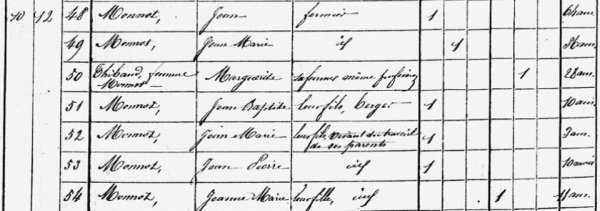 10 12 48 Monnot, Jean fermier 1 64 ans.
49 Monnot, Jean Marie id 1 36 ans.
50 Thibaud, femme Monnot Marguerite sa femme même profession 1 28 ans.
51 Monnot, Jean Baptiste leur fils, berger 1 10 ans.
52 Monnot, Jean Marie leur fils, vivant du travail de ses parents 1 3 ans.
53 Monnot, Jean Pierre id 1
54 Monnot, Jeanne Marie leur fille, id 1 11 ans.